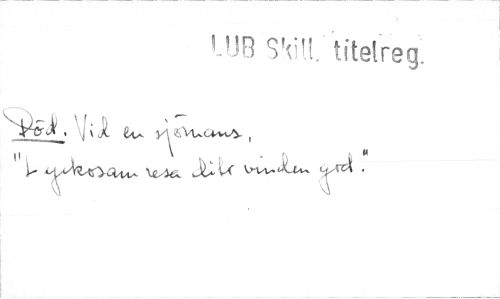 LUB Skill. titelreg.
Död. Vid en sjömans,
"Lyckosam resa blir vinden god."